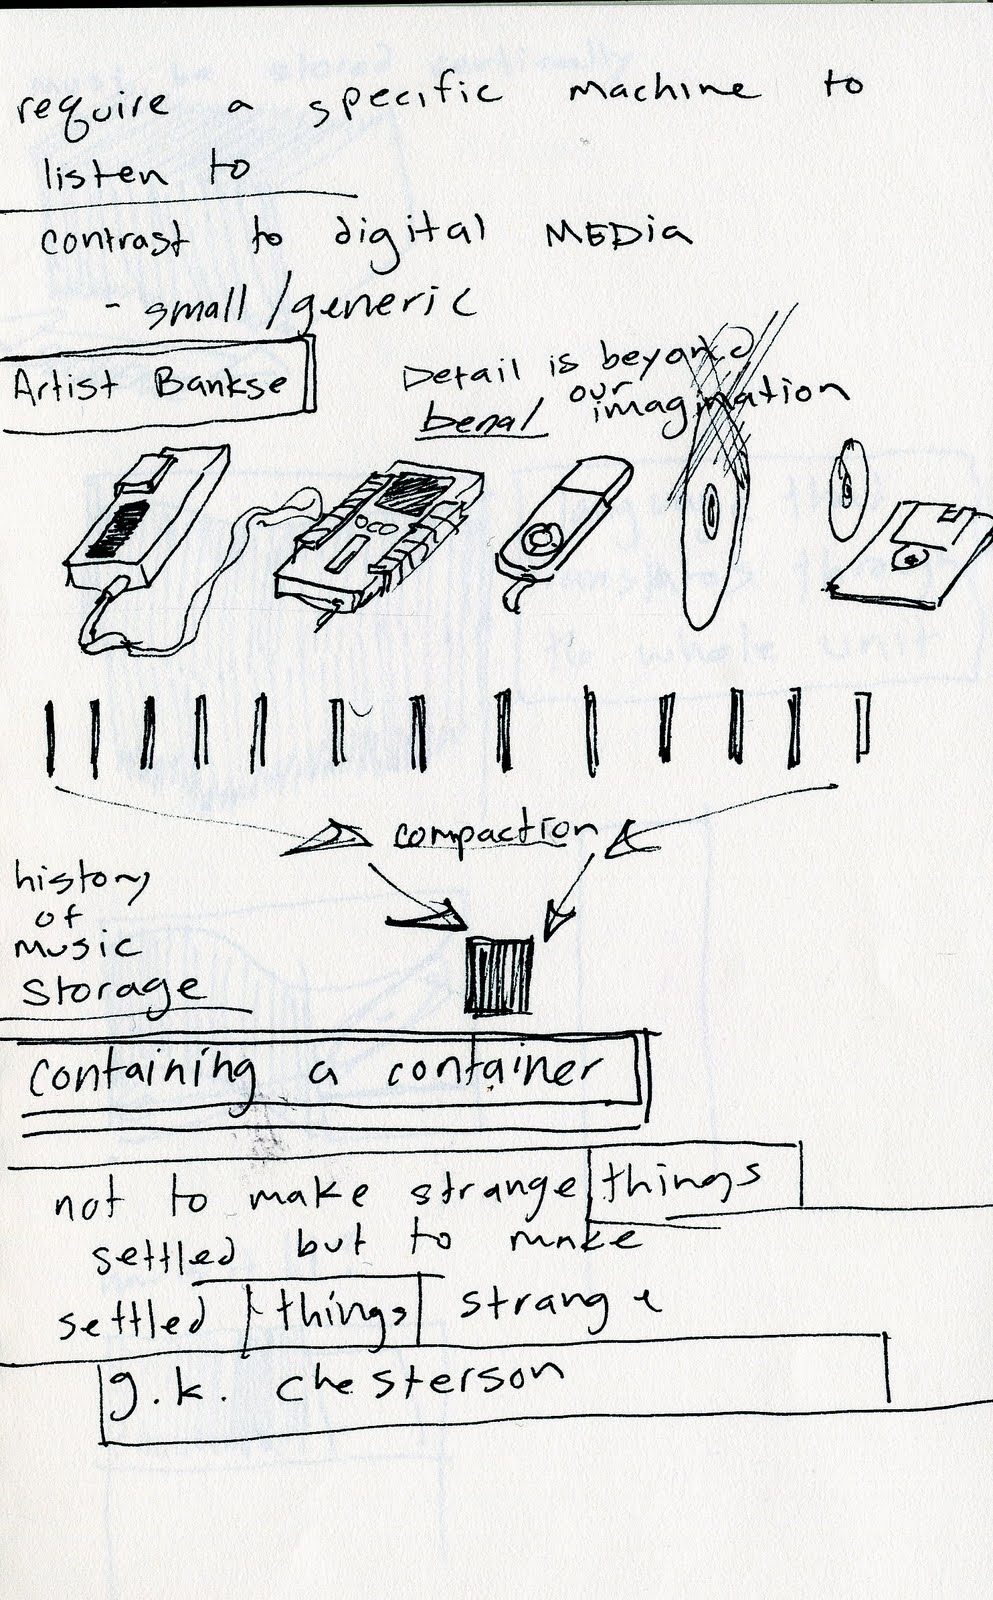 require a specific machine to
listen to
contrast to digital MEDIA
- small/generic
Artist Bankse
Detail is beyond
our
benal imagination
compaction
history
of
music
storage
containing a container
not to make strange things
settled but to make
settled things strange
g.k. chesterson